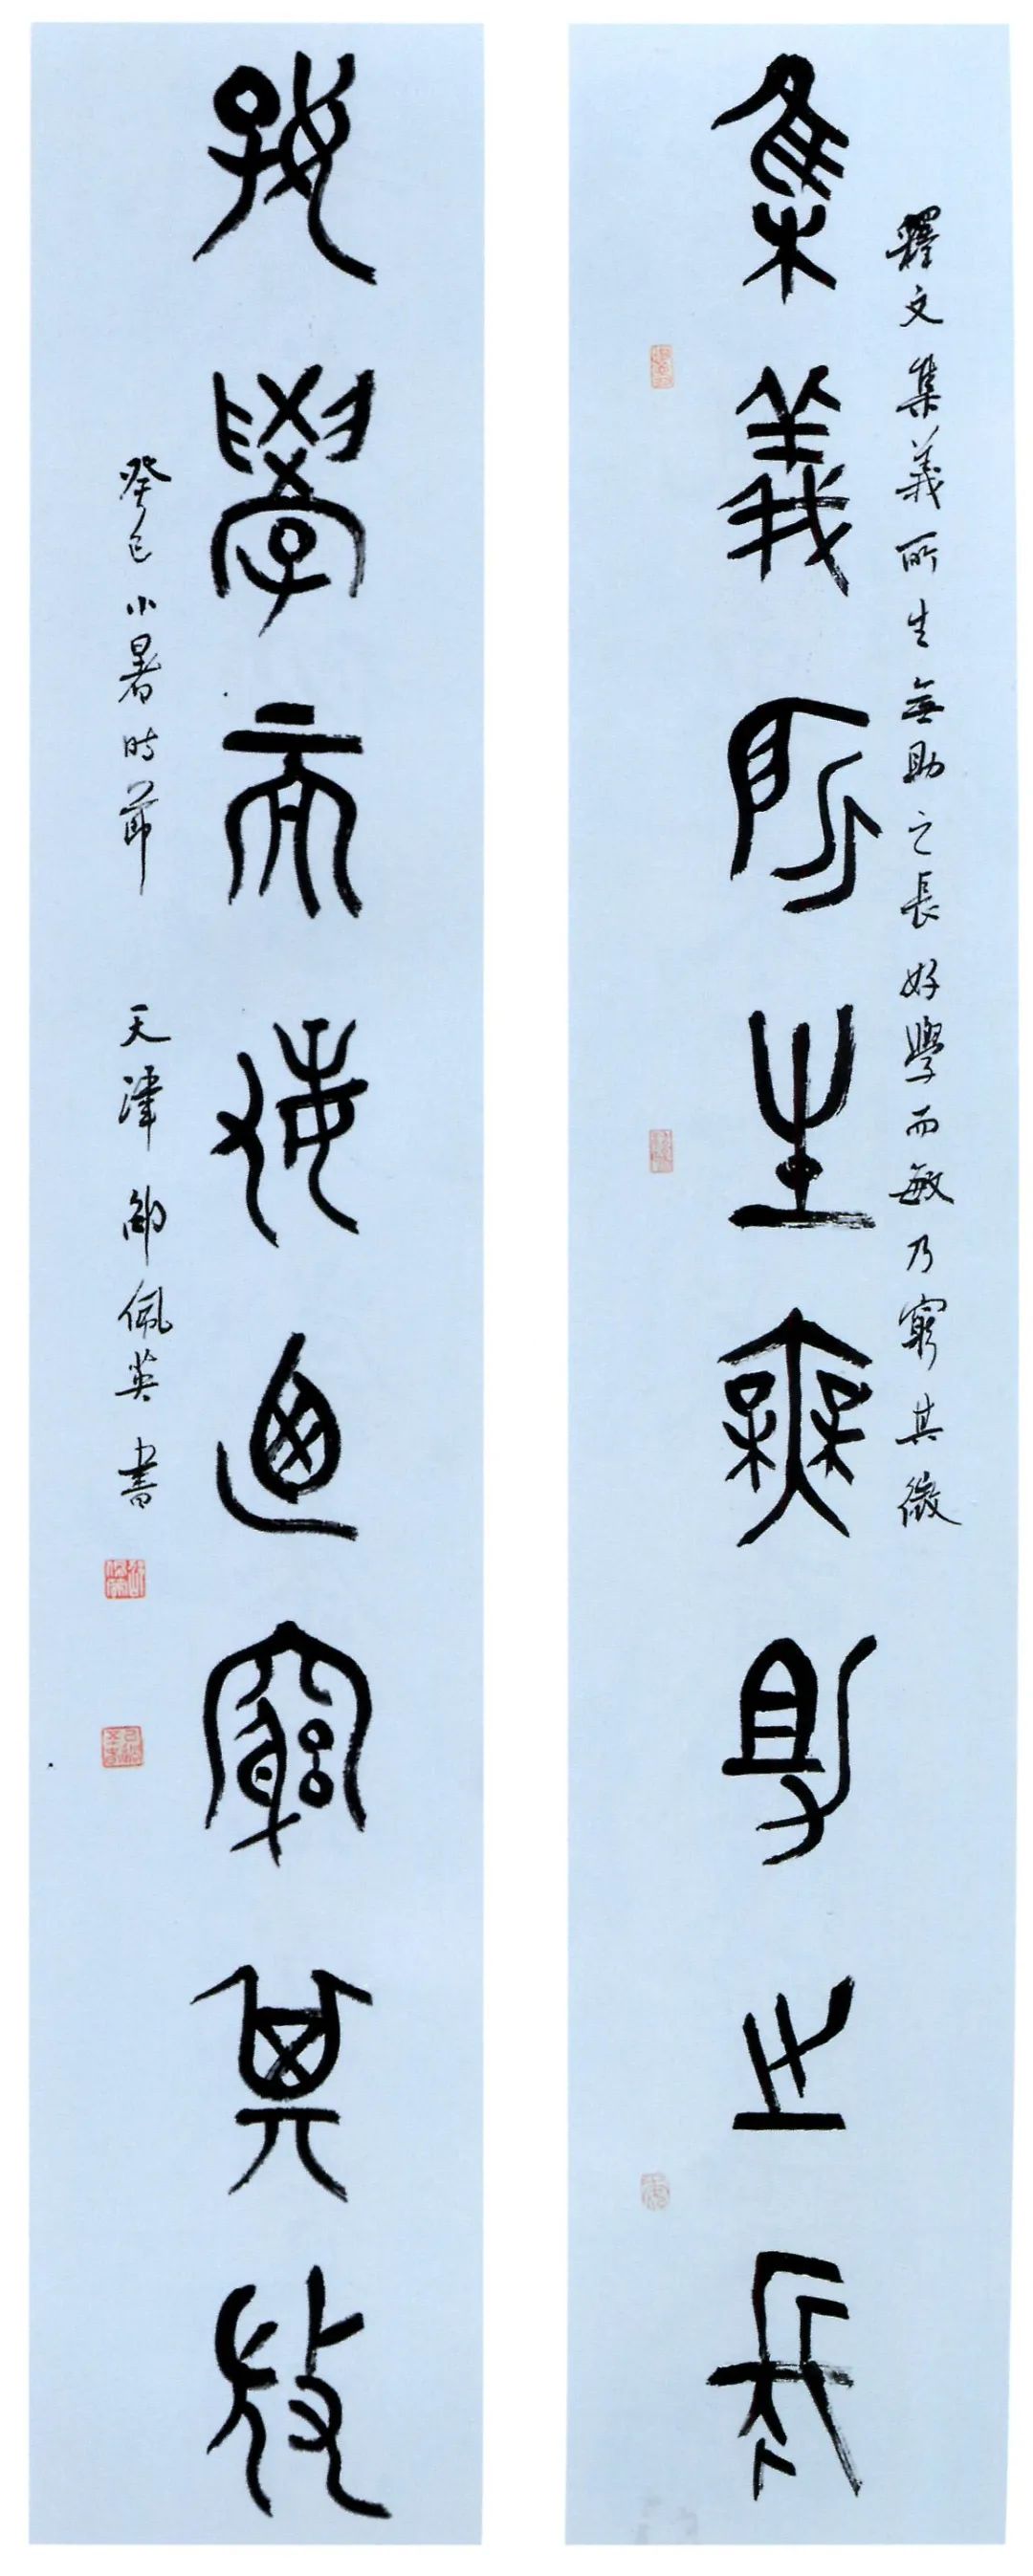 釋文集義所生無助之長好學而敏乃窮其微
集義所生無助之長
好學而敏乃窮其微
癸巳小暑時節 天津邵佩英書